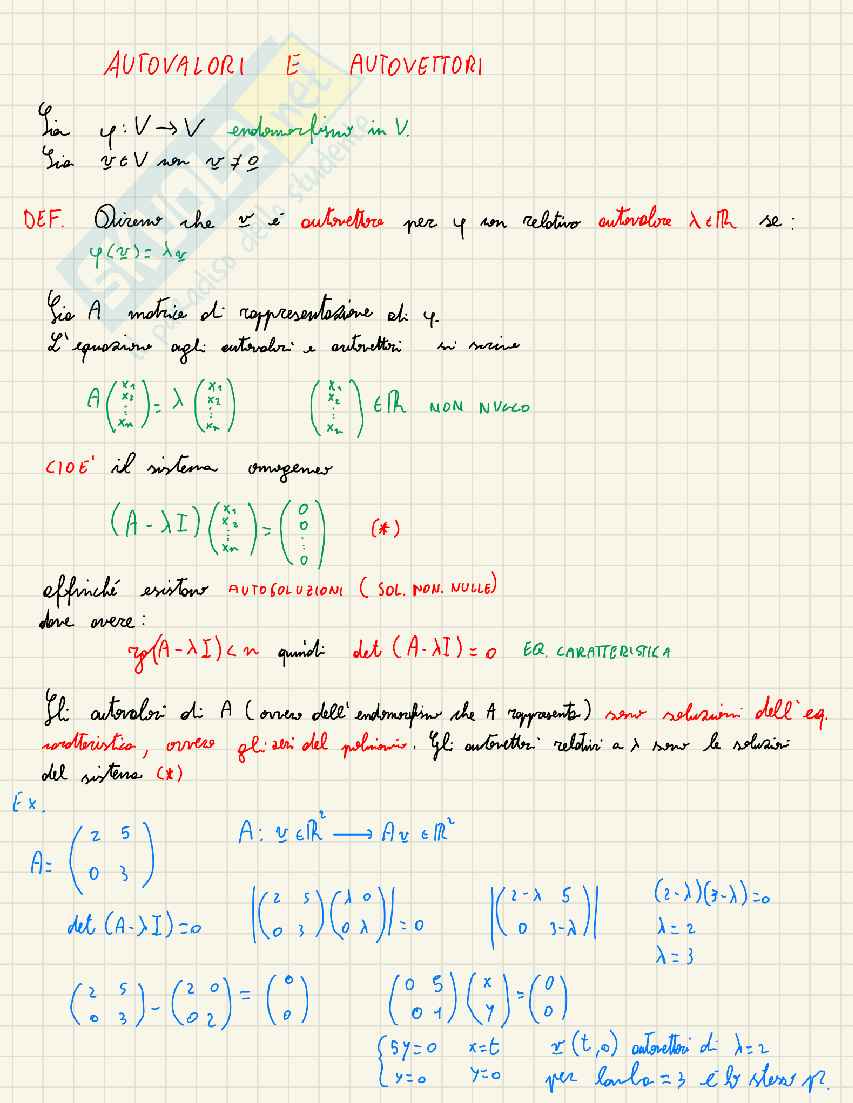 AUTOVALORI E AUTOVETTORI
Sia φ: V → V endomorfismo in V.
Sia v ∈ V con v ≠ 0
DEF. Diremo che v è autovettore per φ con relativo autovalore λ ∈ ℝ se:
φ(v) = λv
Sia A matrice di rappresentazione di φ.
L'equazione agli autovalori e autovettori si scrive
A (x₁ x₂ ⋮ xₙ) = λ (x₁ x₂ ⋮ xₙ) (x₁ x₂ ⋮ xₙ) ∈ ℝ NON NULLO
CIOE' il sistema omogeneo
(A - λI) (x₁ x₂ ⋮ xₙ) = (0 0 ⋮ 0) (*)
affinché esistono AUTOSOLUZIONI (SOL. NON. NULLE)
deve avere:
rg(A - λI) < n quindi det (A - λI) = 0 EQ. CARATTERISTICA
Gli autovalori di A (ovvero dell'endomorfismo che A rappresenta) sono soluzioni dell'eq.
caratteristica, ovvero gli zeri del polinomio. Gli autovettori relativi a λ sono le soluzioni
del sistema (*)
Ex.
A = (2 5 / 0 3) A: v ∈ ℝ² → Av ∈ ℝ²
det (A - λI) = 0 |(2 5 / 0 3) (λ 0 / 0 λ)| = 0 |(2-λ 5 / 0 3-λ)| (2-λ)(3-λ) = 0
λ = 2
λ = 3
(2 5 / 0 3) - (2 0 / 0 2) = (0 / 0) (0 5 / 0 1) (x / y) = (0 / 0)
{5y = 0 x = t v (t, 0) autovettori di λ = 2
y = 0 y = 0 per lamba = 3 è lo stesso
SKUOLA.net
il paradiso dello studente